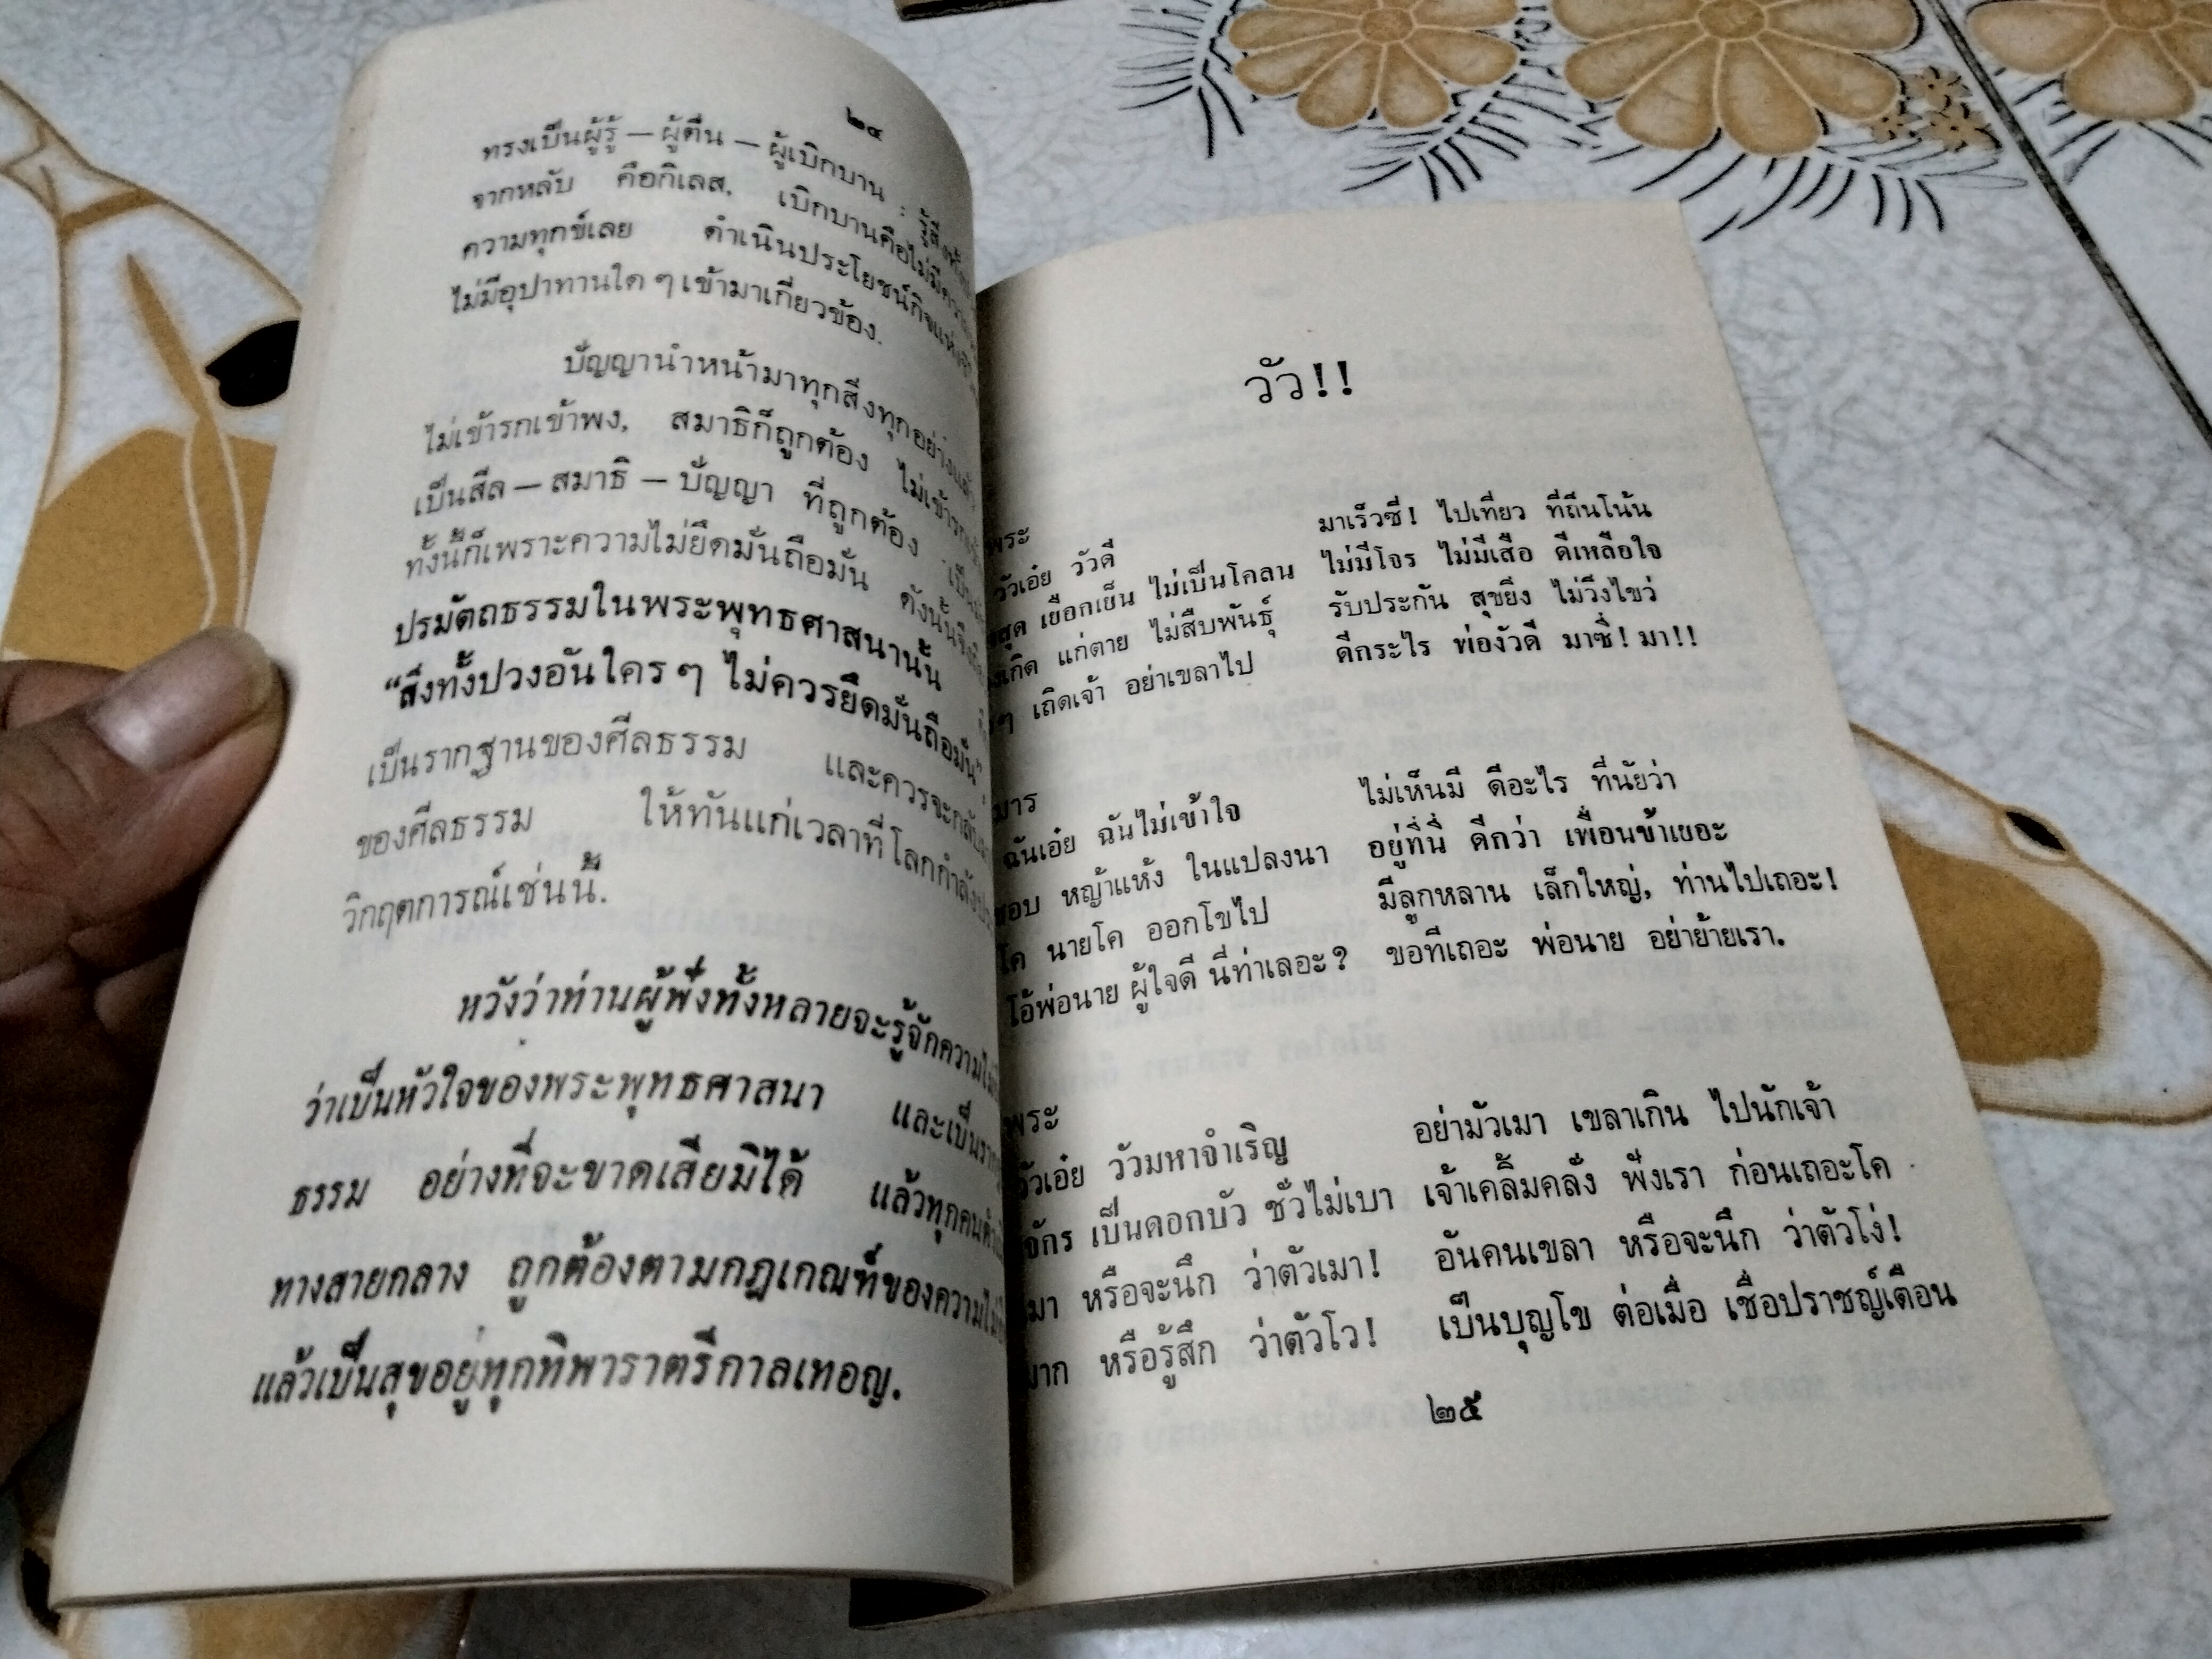 ๒๔
ทรงเป็นผู้รู้ — ผู้ตื่น — ผู้เบิกบาน :
จากหลับ คือกิเลส, เบิกบานคือไม่มี
ความทุกข์เลย ดำเนินประโยชน์กิจแห่ง
ไม่มีอุปาทานใด ๆ เข้ามาเกี่ยวข้อง.
ปัญญานำหน้ามาทุกสิ่งทุกอย่างแล้ว
ไม่เข้ารกเข้าพง, สมาธิก็ถูกต้อง ไม่เข้ารก
เป็นศีล — สมาธิ — ปัญญา ที่ถูกต้อง
ทั้งนี้ก็เพราะความไม่ยึดมั่นถือมั่น ดังนั้นจึง
ปรมัตถธรรมในพระพุทธศาสนานั้น
“สิ่งทั้งปวงอันใคร ๆ ไม่ควรยึดมั่นถือมั่น”
เป็นรากฐานของศีลธรรม และควรจะกลับ
ของศีลธรรม ให้ทันแก่เวลาที่โลกกำลัง
วิกฤตการณ์เช่นนี้.
หวังว่าท่านผู้ฟังทั้งหลายจะรู้จักความ
ว่าเป็นหัวใจของพระพุทธศาสนา และเป็น
ธรรม อย่างที่จะขาดเสียมิได้ แล้วทุกคน
ทางสายกลาง ถูกต้องตามกฎเกณฑ์ของความ
แล้วเป็นสุขอยู่ทุกทิพาราตรีกาลเทอญ.
วัว!!
พระ
วัวเอ๋ย วัวดี มาเร็วซี! ไปเที่ยว ที่ถิ่นโน้น
สุด เยือกเย็น ไม่เป็นโคลน ไม่มีโจร ไม่มีเสือ ดีเหลือใจ
เกิด แก่ตาย ไม่สืบพันธุ์ รับประกัน สุขยิ่ง ไม่วิ่งไขว่
ๆ เถิดเจ้า อย่าเขลาไป ดีกระไร พ่องัวดี มาซิ่! มา!!
มาร
ฉันเอ๋ย ฉันไม่เข้าใจ ไม่เห็นมี ดีอะไร ที่นัยว่า
ชอบ หญ้าแห้ง ในแปลงนา อยู่ที่นี่ ดีกว่า เพื่อนข้าเยอะ
โค นายโค ออกโขไป มีลูกหลาน เล็กใหญ่, ท่านไปเถอะ!
โอ้พ่อนาย ผู้ใจดี นี่ท่าเลอะ? ขอทีเถอะ พ่อนาย อย่าย้ายเรา.
พระ
วัวเอ๋ย วัวมหาจำเริญ อย่ามัวเมา เขลาเกิน ไปนักเจ้า
จักร เป็นดอกบัว ชั่วไม่เบา เจ้าเคลิ้มคลั่ง ฟังเรา ก่อนเถอะโค
เมา หรือจะนึก ว่าตัวเมา! อันคนเขลา หรือจะนึก ว่าตัวโง่!
มาก หรือรู้สึก ว่าตัวโว! เป็นบุญโข ต่อเมื่อ เชื่อปราชญ์เตือน
๒๕